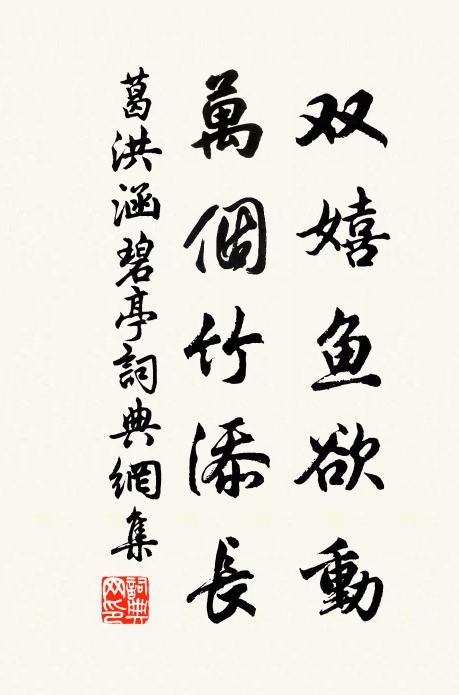 双嬉鱼欲動
萬個竹添長
葛洪涵碧亭詞典網集
詞典網印